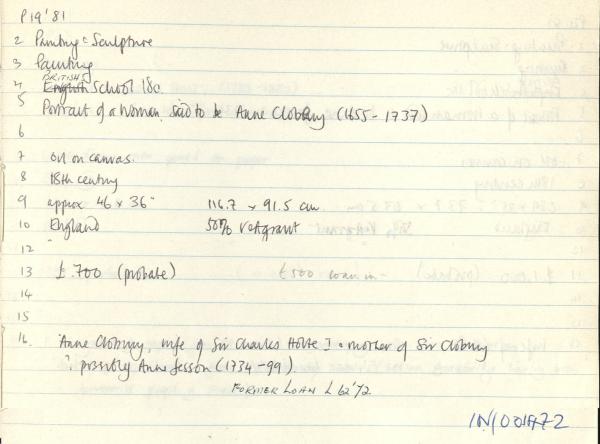 P19'81
2 Painting & Sculpture
3 Painting
4 English BRITISH School 18c.
5 Portrait of a Woman, said to be Anne Clobery (1655-1737)
6
7 oil on canvas.
8 18th century
9 approx 46 x 36" 116.7 x 91.5 cm
10 England 50% V&A grant
12
13 £700 (probate) £500
14
15
16. Anne Clobery, wife of Sir Charles Holte I & mother of Sir Clobery
? possibly Anne Jesson (1734-99)
FORMER LOAN L 62'72